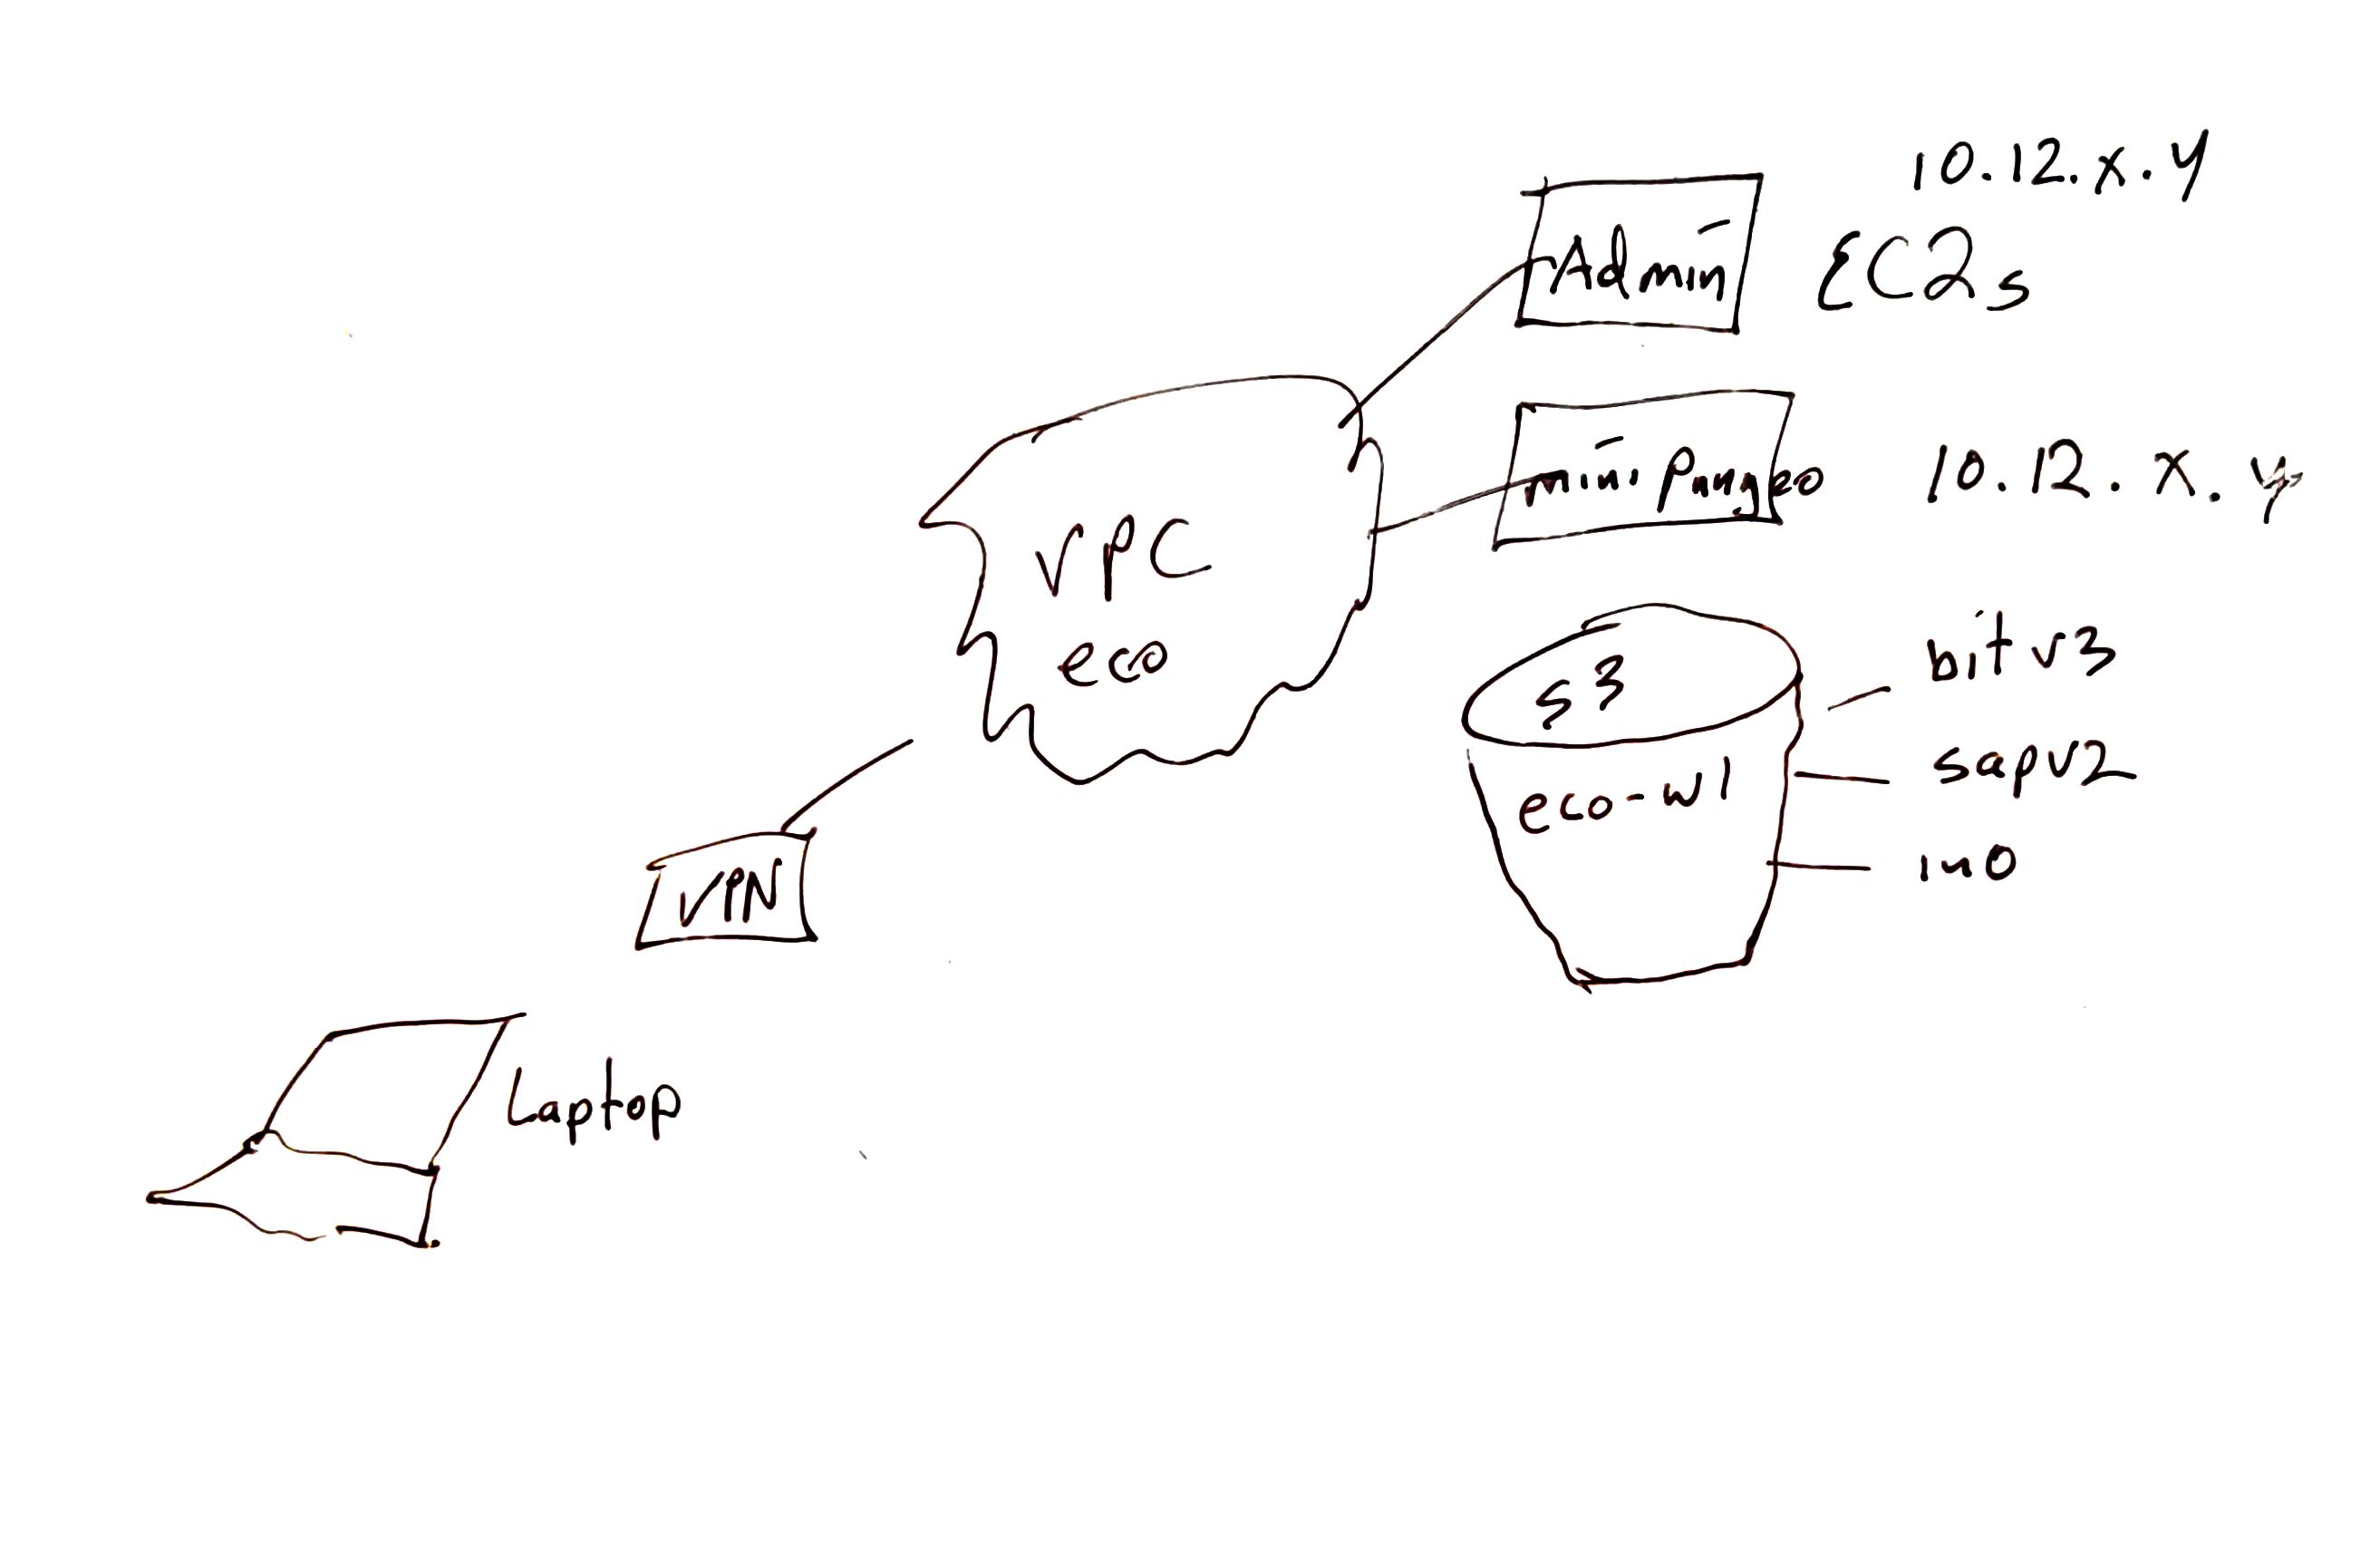 10.12.x.y
Admin
EC2s
mini Pangeo
10.12.x.y
VPC
eco
S3
bitv3
sapv2
eco-w1
in0
VPN
Laptop